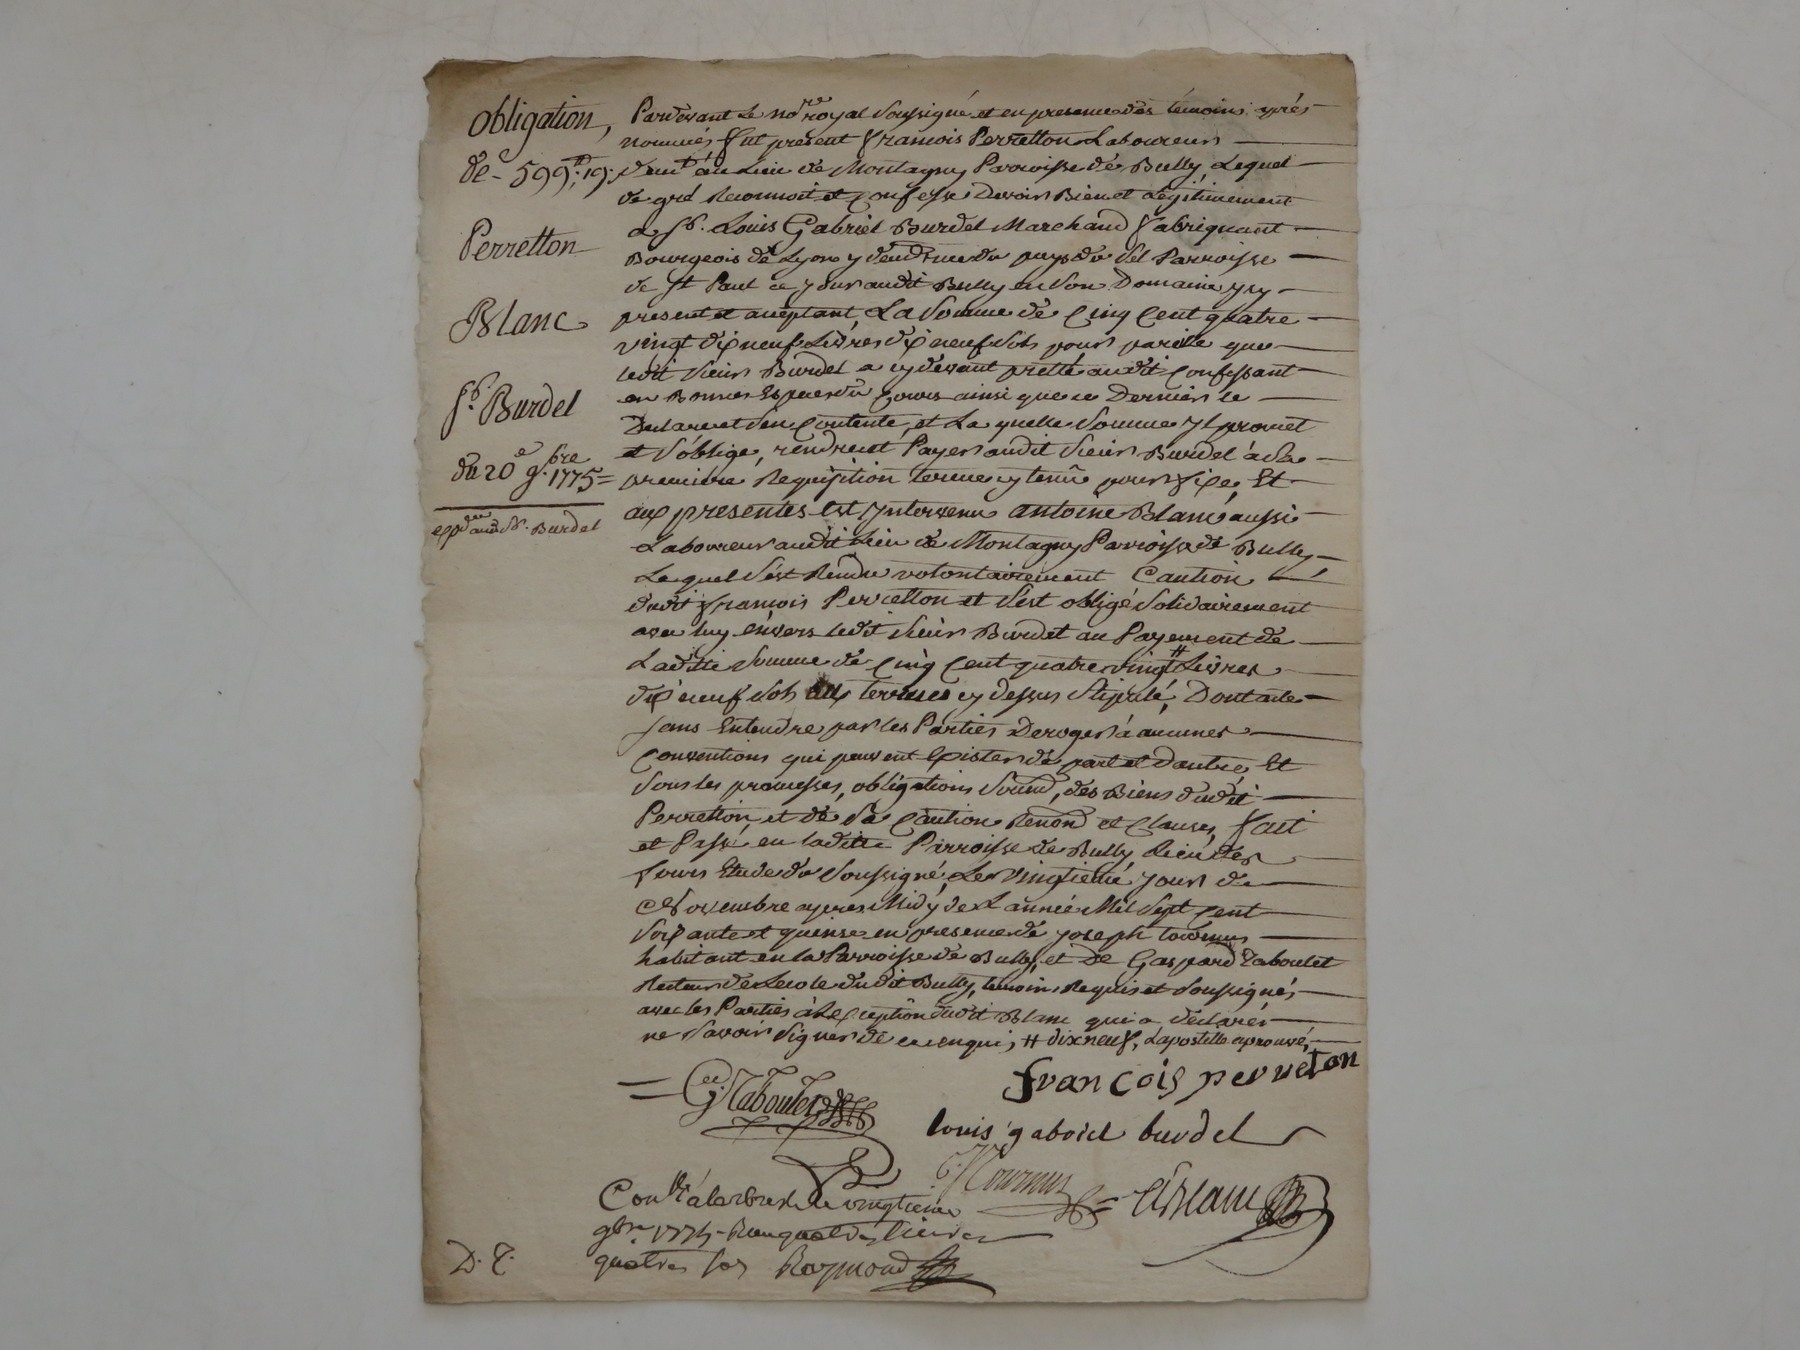 obligation,
de 599ᵗᵗ: 19ˢ
Perretton
Blanc
Sʳ. Burdel
du 20ᵉ 9.bre 1775
expᵉᵉ au Sʳ. Burdel
Pardevant Le noʳᵉ royal soussigné et en presence des témoins après
nommés, fut présent françois Perretton Laboureur
demᵗ au Lieu de Montagny Parroisse de Bully, Lequel
de gré Reconnoit et confesse Devoir Bien et Legitimement
a Sʳ. Louis Gabriel Burdel Marchand fabriquant
Bourgeois de Lyon y demᵗ rue du puys du sel Parroisse
de St Paul ce jour audit Bully en son Domaine icy
present et acceptant, La somme de Cinq Cent quatre
vingt dix neuf Livres dix neuf sols pour pareille que
ledit sieur Burdel a cy devant pretté audit confessant
en Bonnes Especes du Cours ainsi que ce Dernier le
Declare et s'en contente, et La quelle somme Il promet
et s'oblige, rendre et Payer audit sieur Burdel à sa
premiere Requisition terme y tenû pour fixe, Et
aux presentes est Intervenu antoine Blanc aussi
Laboureur audit Lieu de Montagny Parroisse de Bully
Lequel s'est Rendu volontairement Caution
dudit françois Perretton et s'est obligé solidairement
avec luy envers ledit sieur Burdel au Payement de
Laditte somme de Cinq Cent quatre vingt # Livres
dix neuf sols aux termes cy dessus stipulé, Dont acte
sans Entendre par les Parties Deroger à aucunes
Conventions qui peuvent Exister de part et d'autre, Et
sous les promesses, obligations soumᵒⁿˢ, des Biens dudit
Perretton, et de sa Caution Renonᵒⁿ et Clauses, fait
et Passé en laditte Parroisse de Bully Lieu des
fours Etude du soussigné, Le vingtieme Jour de
Novembre apres Midy de L'année Mil sept cent
soixante et quinse en presence de joseph tournus
habitant en la Parroisse de Bully, et de Gaspard Taboulet
Recteur de Lecole dudit Bully, temoins Requis et soussignés
avec les Parties à L'exception dudit Blanc qui a déclaré
ne savoir signer de ce enquis, # dix neuf, L'apostille aprouvé,
françois perreton
G. Taboulet
louis gabriel burdel
J. Tournus
Contˡᵉ à Larbresle le vingtieme
9bre 1775 - Reçu quatre livres
quatre sols Raymond
D. T.